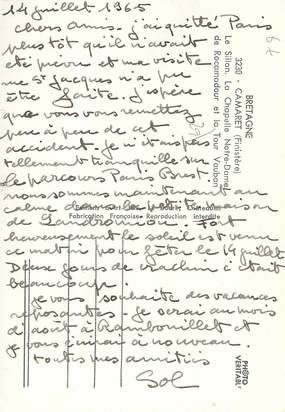 14 juillet 1965
chers amis - j'ai quitté Paris
plus tôt qu'il n'avait
été prévu et ma visite
rue St Jacques n'a pu
être faite. j'espère
que vous vous remettez
peu à peu de cet
accident. Je n'étais pas
tellement tranquille sur
le parcours Paris Brest.
nous sommes maintenant au
calme dans la petite maison
de Fort
heureusement le soleil est venu
ce matin pour fêter le 14 juillet
Deux jours de crachin c'était
beaucoup.
je vous souhaite des vacances
reposantes - je serai au mois
d'août à Rambouillet et
je vous écrirai à nouveau.
toutes mes amitiés
Sol
BRETAGNE
3230 - CAMARET (Finistère)
Le Sillon. La Chapelle Notre-Dame
de Rocamadour et la Tour Vauban
Fabrication Française - Reproduction interdite
PHOTO
VERITABLE